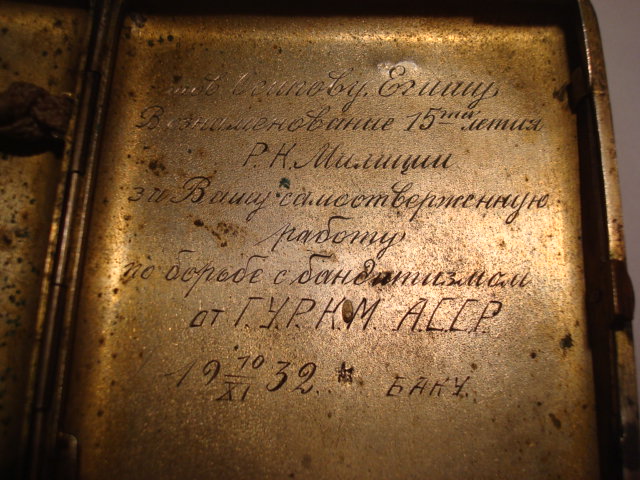 Осипову, Егишу
В ознаменование 15ти летия
Р.К. Милиции
за Вашу самоотверженную
работу
по борьбе с бандитизмом
от Г.У.Р.К.М АССР
19 10/XI 32 БАКУ.